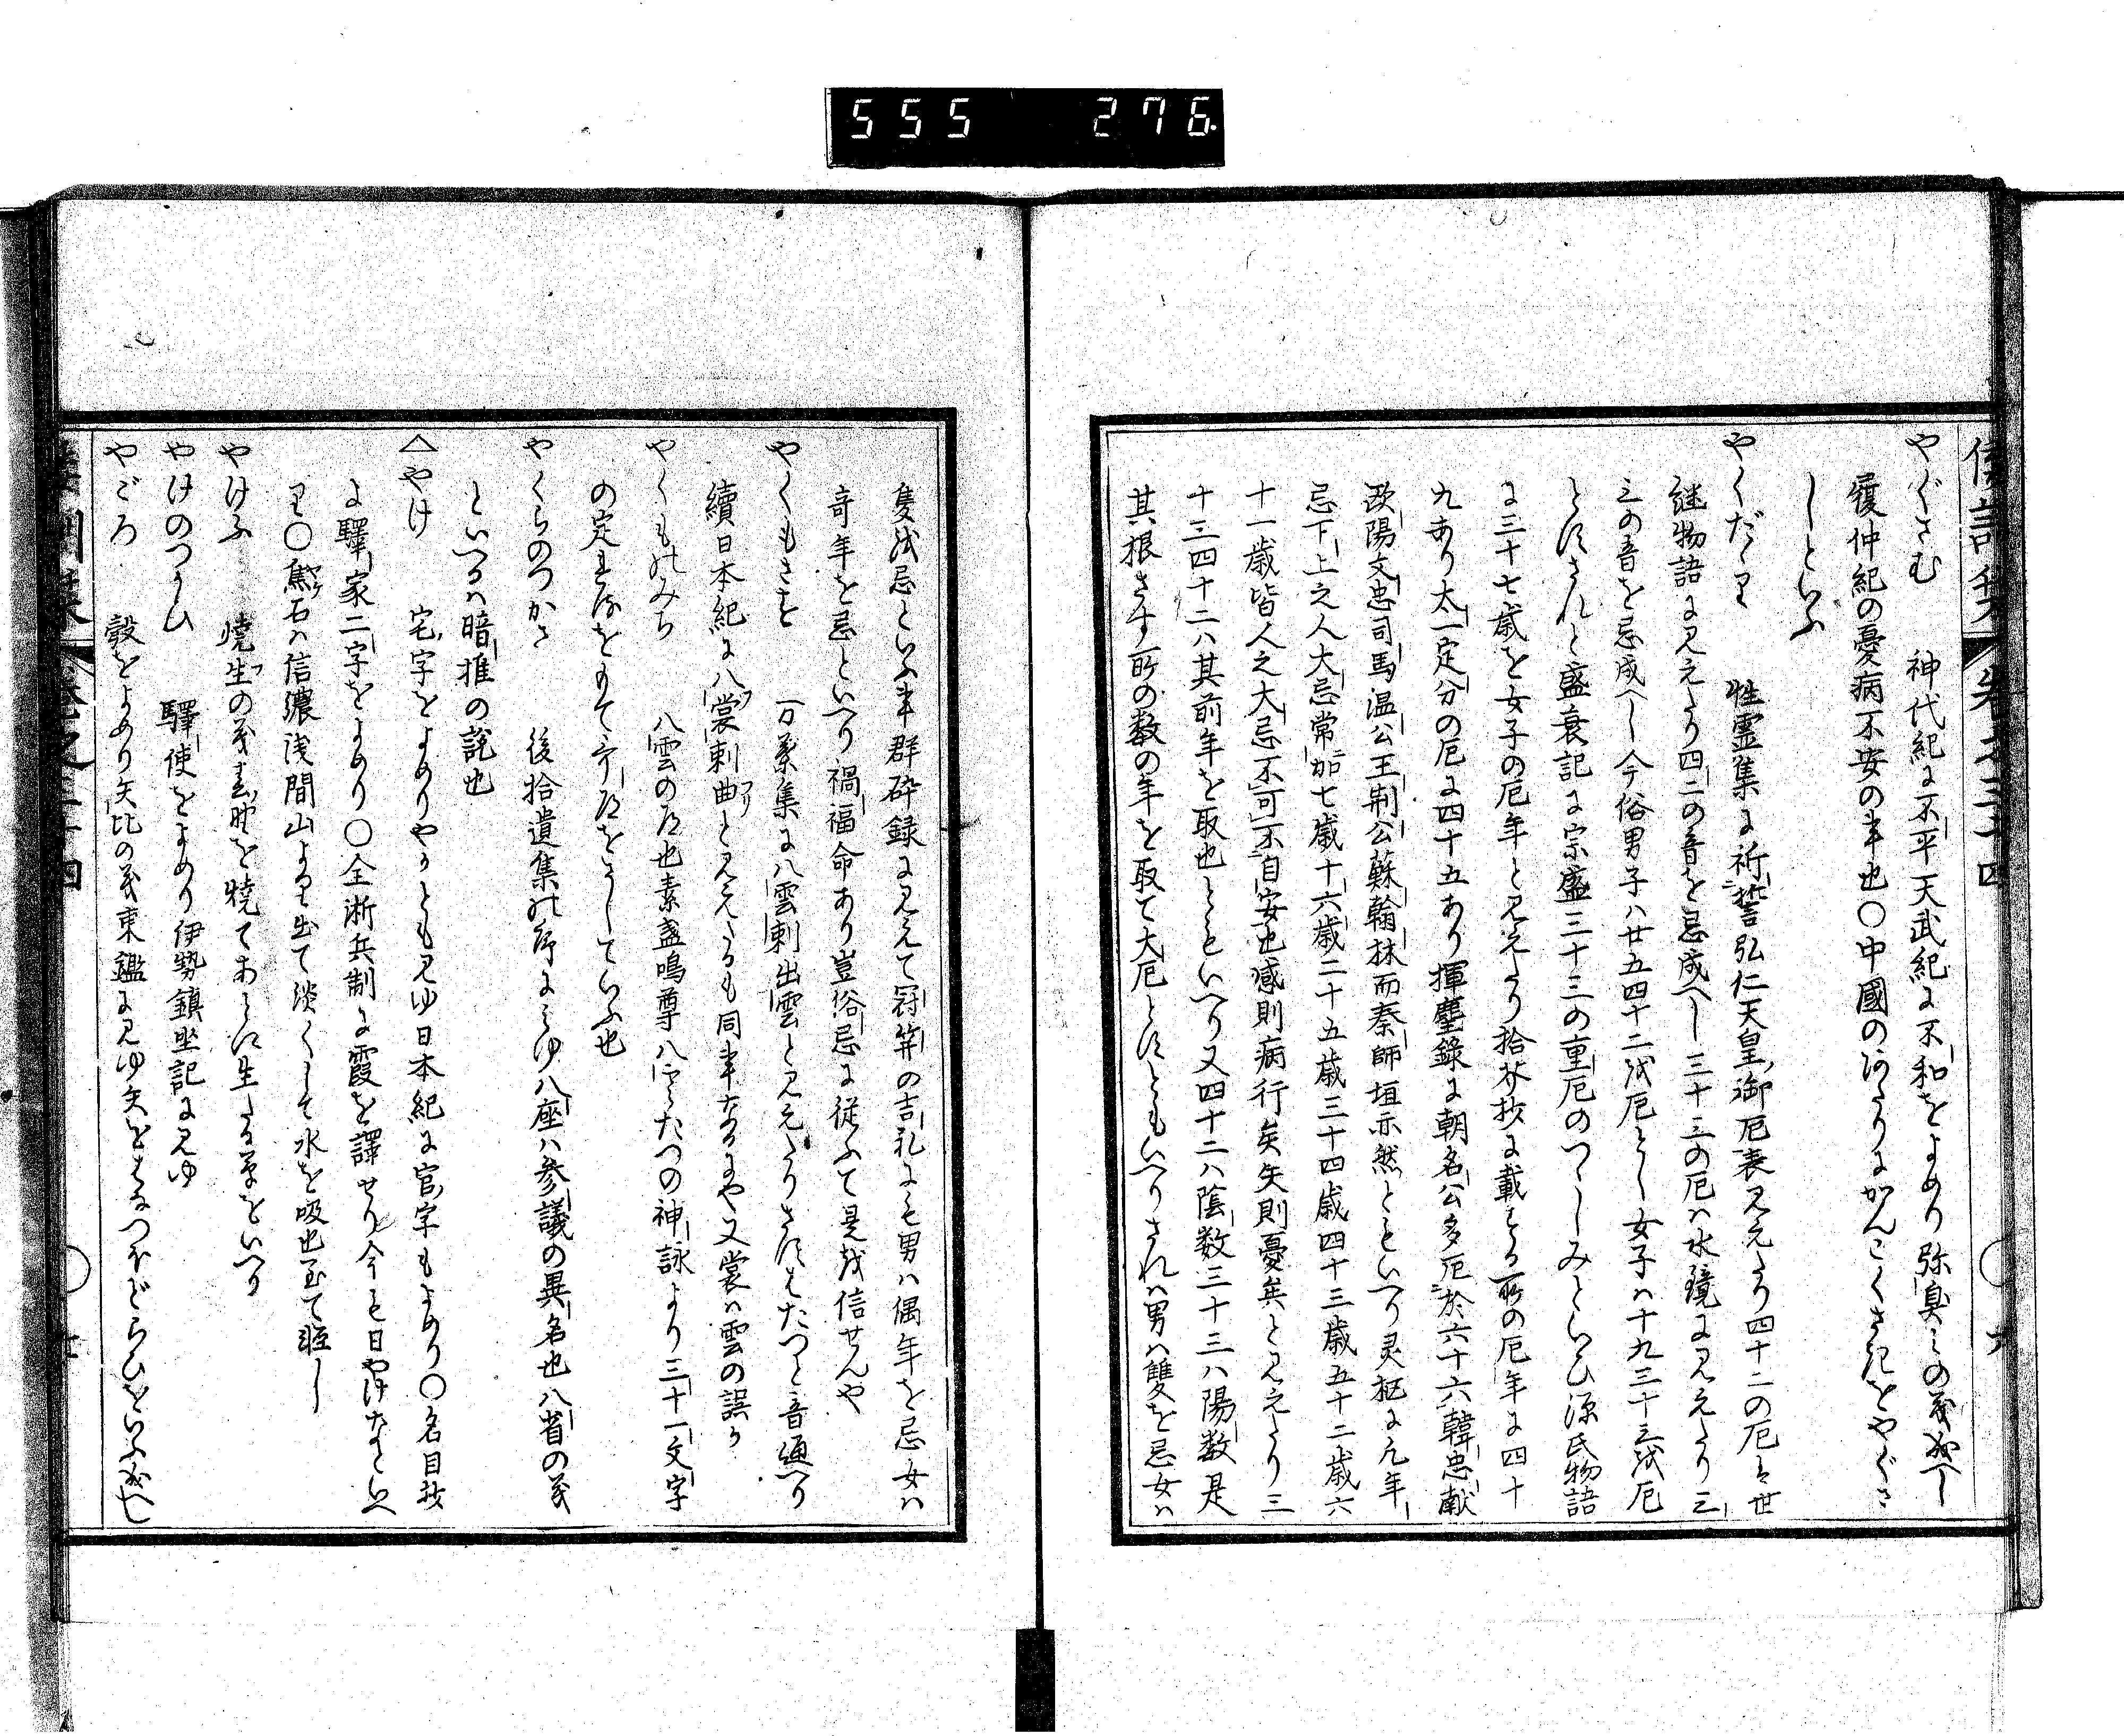 555 276
やぐさむ 神代紀に不平天武紀に不和をよめり弥臭みの義成へし
履仲紀の憂病不安の事也〇中國のほとりにかんこくさきをやぐさ
しといふ
やくだゝり 性霊集に祈誓弘仁天皇御厄表見えたり四十二の厄は世
継物語に見えたり四二の音を忌成へし三十三の厄ハ水鏡に見えたり三
三の音を忌成へし今俗男子ハ廿五四十二を厄とし女子ハ十九三十三を厄
とすされと盛衰記に宗盛三十三の重厄のつゝしみといひ源氏物語
に三十七歳を女子の厄年と見えたり拾芥抄に載する所の厄年に四十
九あり太一定分の厄に四十五あり揮麈錄に朝名公多厄於六十六韓忠献
欧陽文忠司馬温公王荆公蘇翰林而秦師垣亦然ともいへり灵枢に凡年
忌下上之人大忌常加七歳十六歳二十五歳三十四歳四十三歳五十二歳六
十一歳皆人之大忌不可不自安也感則病行矣失則憂矣と見えたり三
十三四十二ハ其前年を取也ともいへり又四十二ハ陰数三十三ハ陽数是
其根さす所の数の年を取て大厄とすともいへりされハ男ハ雙を忌女ハ
隻を忌といふ事群砕録に見えて冠笄の吉礼にも男ハ偶年を忌女ハ
奇年を忌といへり禍福命あり豈俗忌に従ふて是を信せんや
やくもさを 万葉集に八雲刺出雲と見えたりさすとたつと音通へり
續日本紀に八裳刺曲と見えたるも同事なるにや又裳ハ雲の誤か
やくものみち 八雲の道也素盞嗚尊八雲たつの神詠より三十一文字
の定まれるをもて哥道をさしていふ也
やくらのつかさ 後拾遺集の序にみゆ八座ハ参議の異名也八省の義
といへるハ暗推の説也
△やけ 宅字をよめりやかとも見ゆ日本紀に官字もよめり〇名目抄
に驛家二字をよめり〇全淅兵制に霞を譯せり今も日やけなといへ
り〇焦石ハ信濃浅間山より出て淡くして水を吸也至て軽し
やけふ 燒生の義春野を焼てあらた生たる草をいへり
やけのつかひ 驛使をよめり伊勢鎮坐記に見ゆ
やごろ 彀をよめり矢比の義東鑑に見ゆ矢をはなつほどらひをいふ成へし